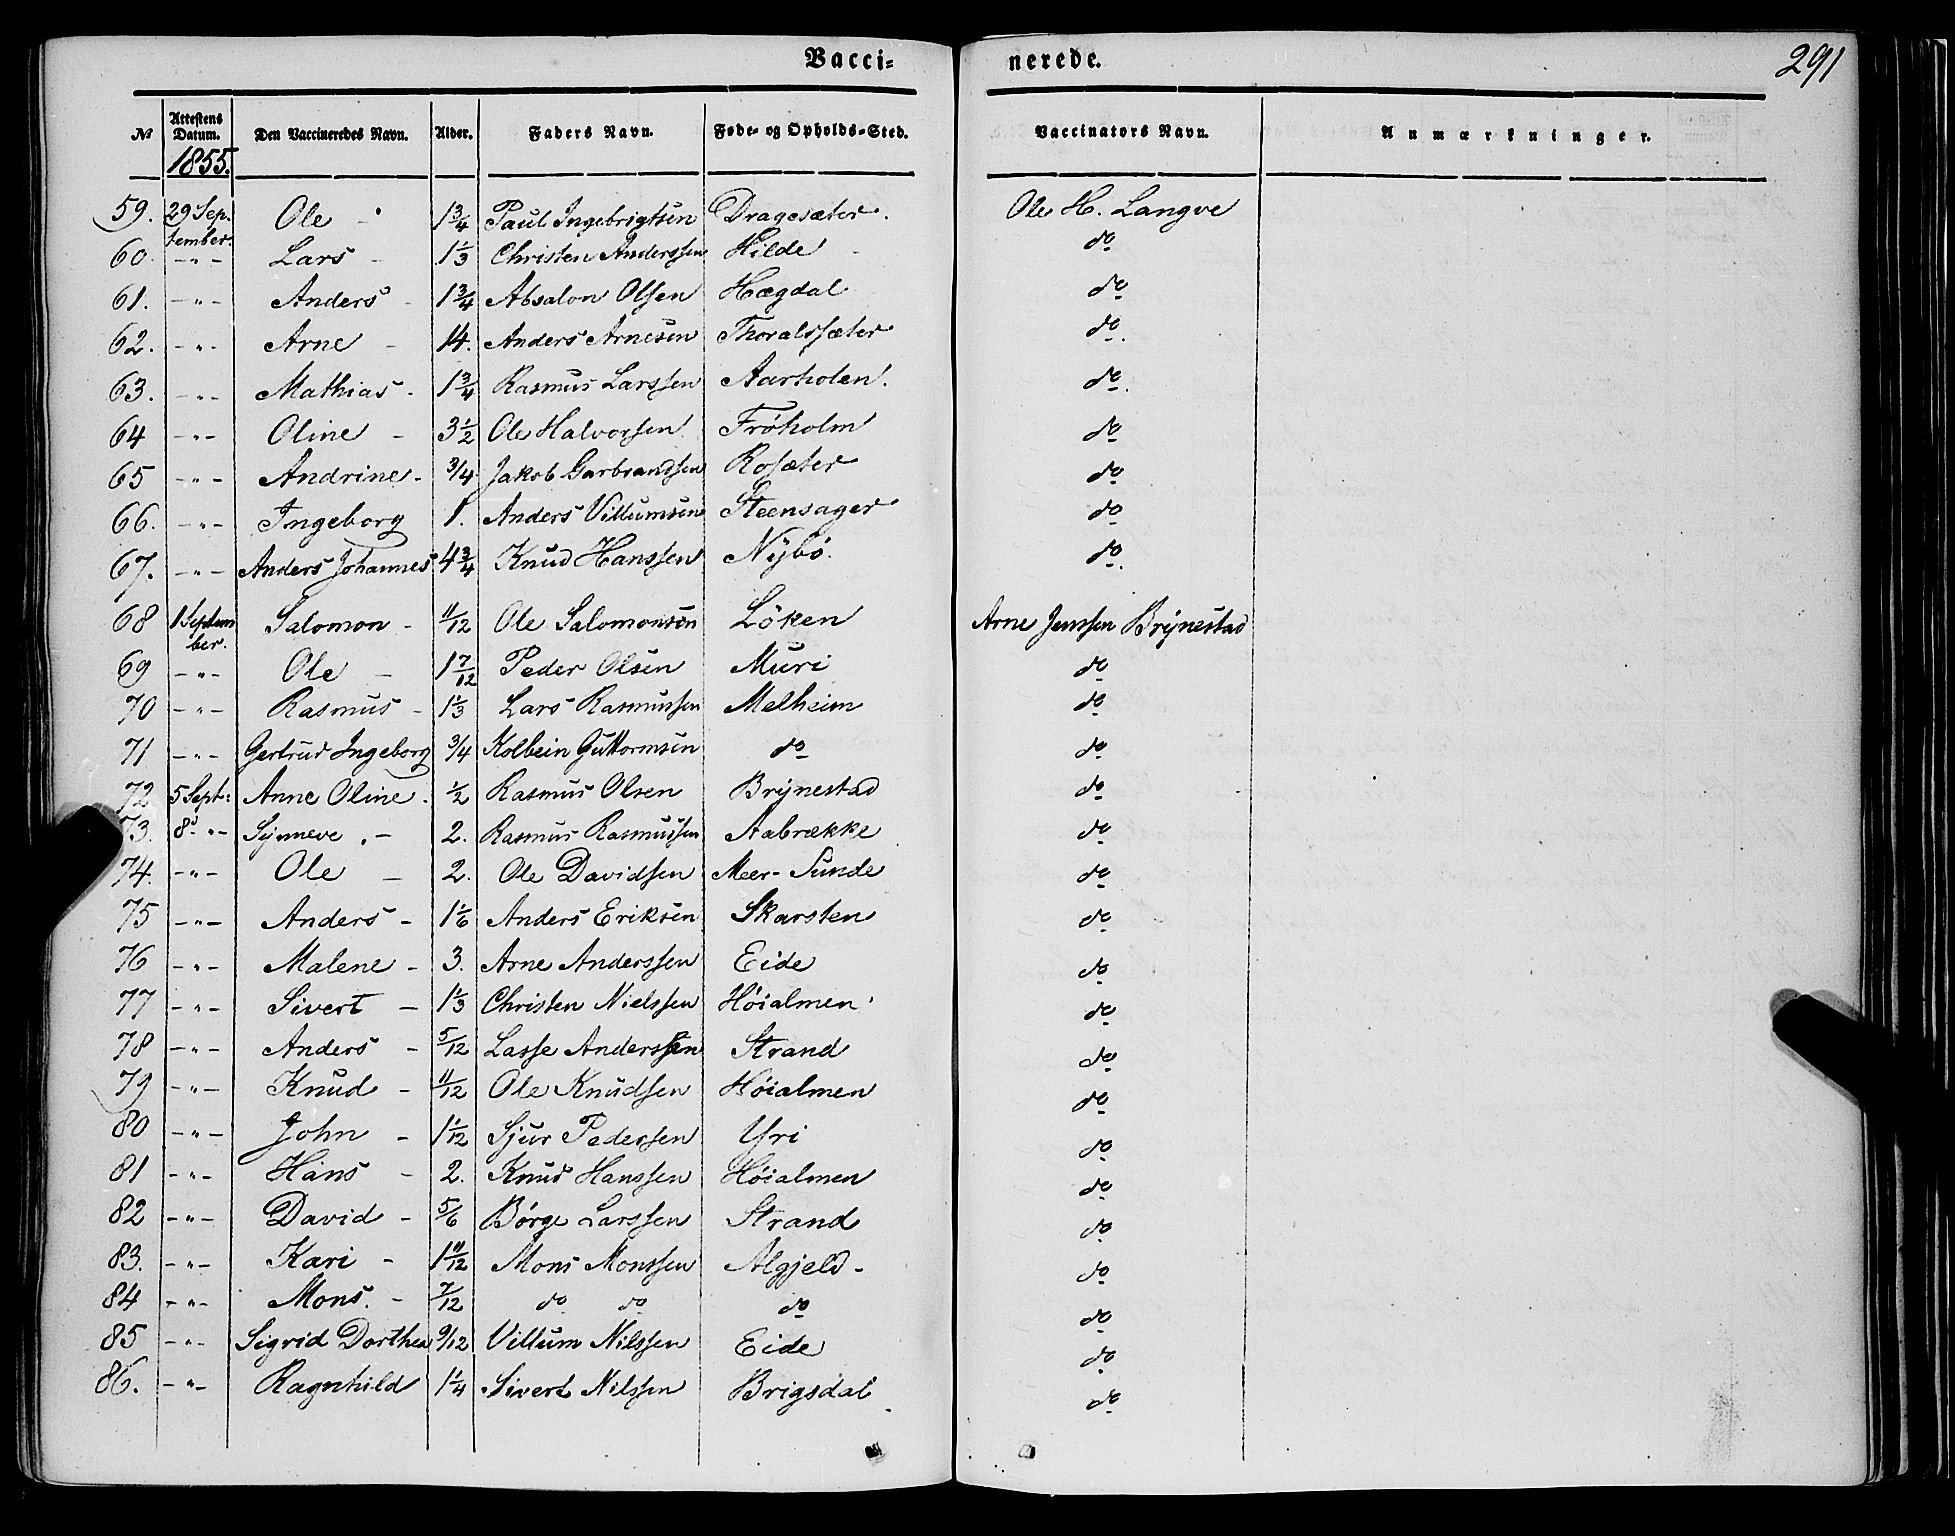 Vacci- nerede. 291
№ Attestens Datum. Den Vaccineredes Navn. Alder. Faders Navn. Føde- og Opholds-Sted. Vaccinators Navn. Anmærkninger.
1855.
59. 29 Sep- Ole - 1 3/4 Paul Ingebrigtsen Dragesæter. Ole H. Langve
tember.
60 -"- Lars - 1 1/3 Christen Anderssen Hilde - do
61. -"- Anders - 1 3/4 Absalon Olsen Hægdal do
62. -"- Arne - 14. Anders Arnesen Thoralssæter do.
63. -"- Mathias - 1 3/4 Rasmus Larssen Aarholen. do.
64 -"- Oline - 3 1/2 Ole Halvorsen Frøholm do
65 -"- Andrine - 3/4 Jakob Garbrandsen Rosæter do
66. -"- Ingeborg 1. Anders Villumsen Steensager do
67. -"- Anders Johannes 4 3/4 Knud Hanssen Nybø. do.
68 1 Septem Salomon - 11/12 Ole Salomonsen Løken Arne Jenssen Brynestad
ber.
69 -"- Ole - 1 7/12 Peder Olsen Muri do
70 -"- Rasmus - 1 1/3 Lars Rasmussen Melheim do
71 -"- Gertrud Ingeborg 3/4 Kolbein Guttormsen do do
72 5 Sept: Anne Oline. 1/2 Rasmus Olsen Brynestad do
73. 8d -"- Synneve - 2. Rasmus Rasmussen Aabrække do
74. -"- Ole - 2. Ole Davidsen Meer-Sunde do
75 -"- Anders - 1 1/6 Anders Eriksen Skarsten do
76 -"- Malene - 3. Arne Anderssen Eide do
77 -"- Sivert - 1 1/3 Christen Nielssen Høialmen do
78 -"- Anders - 5/12 Lasse Anderssen Strand do
79 -"- Knud - 11/12 Ole Knudsen Høialmen do
80 -"- John - 1 1/12 Sjur Pedersen Yri do
81 -"- Hans - 2. Knud Hanssen Høialmen do
82 -"- David - 5/6 Børge Larssen Strand do
83. -"- Kari - 1 11/12 Mons Monssen Algjeld - do
84 -"- Mons. - 7/12 do do do do
85 -"- Sigrid Dorthea 9/12 Villum Nilssen Eide do
86. -"- Ragnhild 1 1/4 Sivert Nilssen Brigsdal do